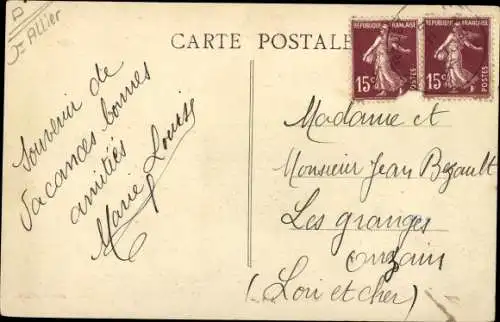 D
Jt Allier
CARTE POSTALE
REPUBLIQUE FRANÇAISE
15c
POSTES
REPUBLIQUE FRANÇAISE
15c
POSTES
Souvenir de
Vacances bonnes
amitiés
Marie Louise
Madame et
Monsieur Jean Bezault
Les granges
onzain
(Loir et cher)